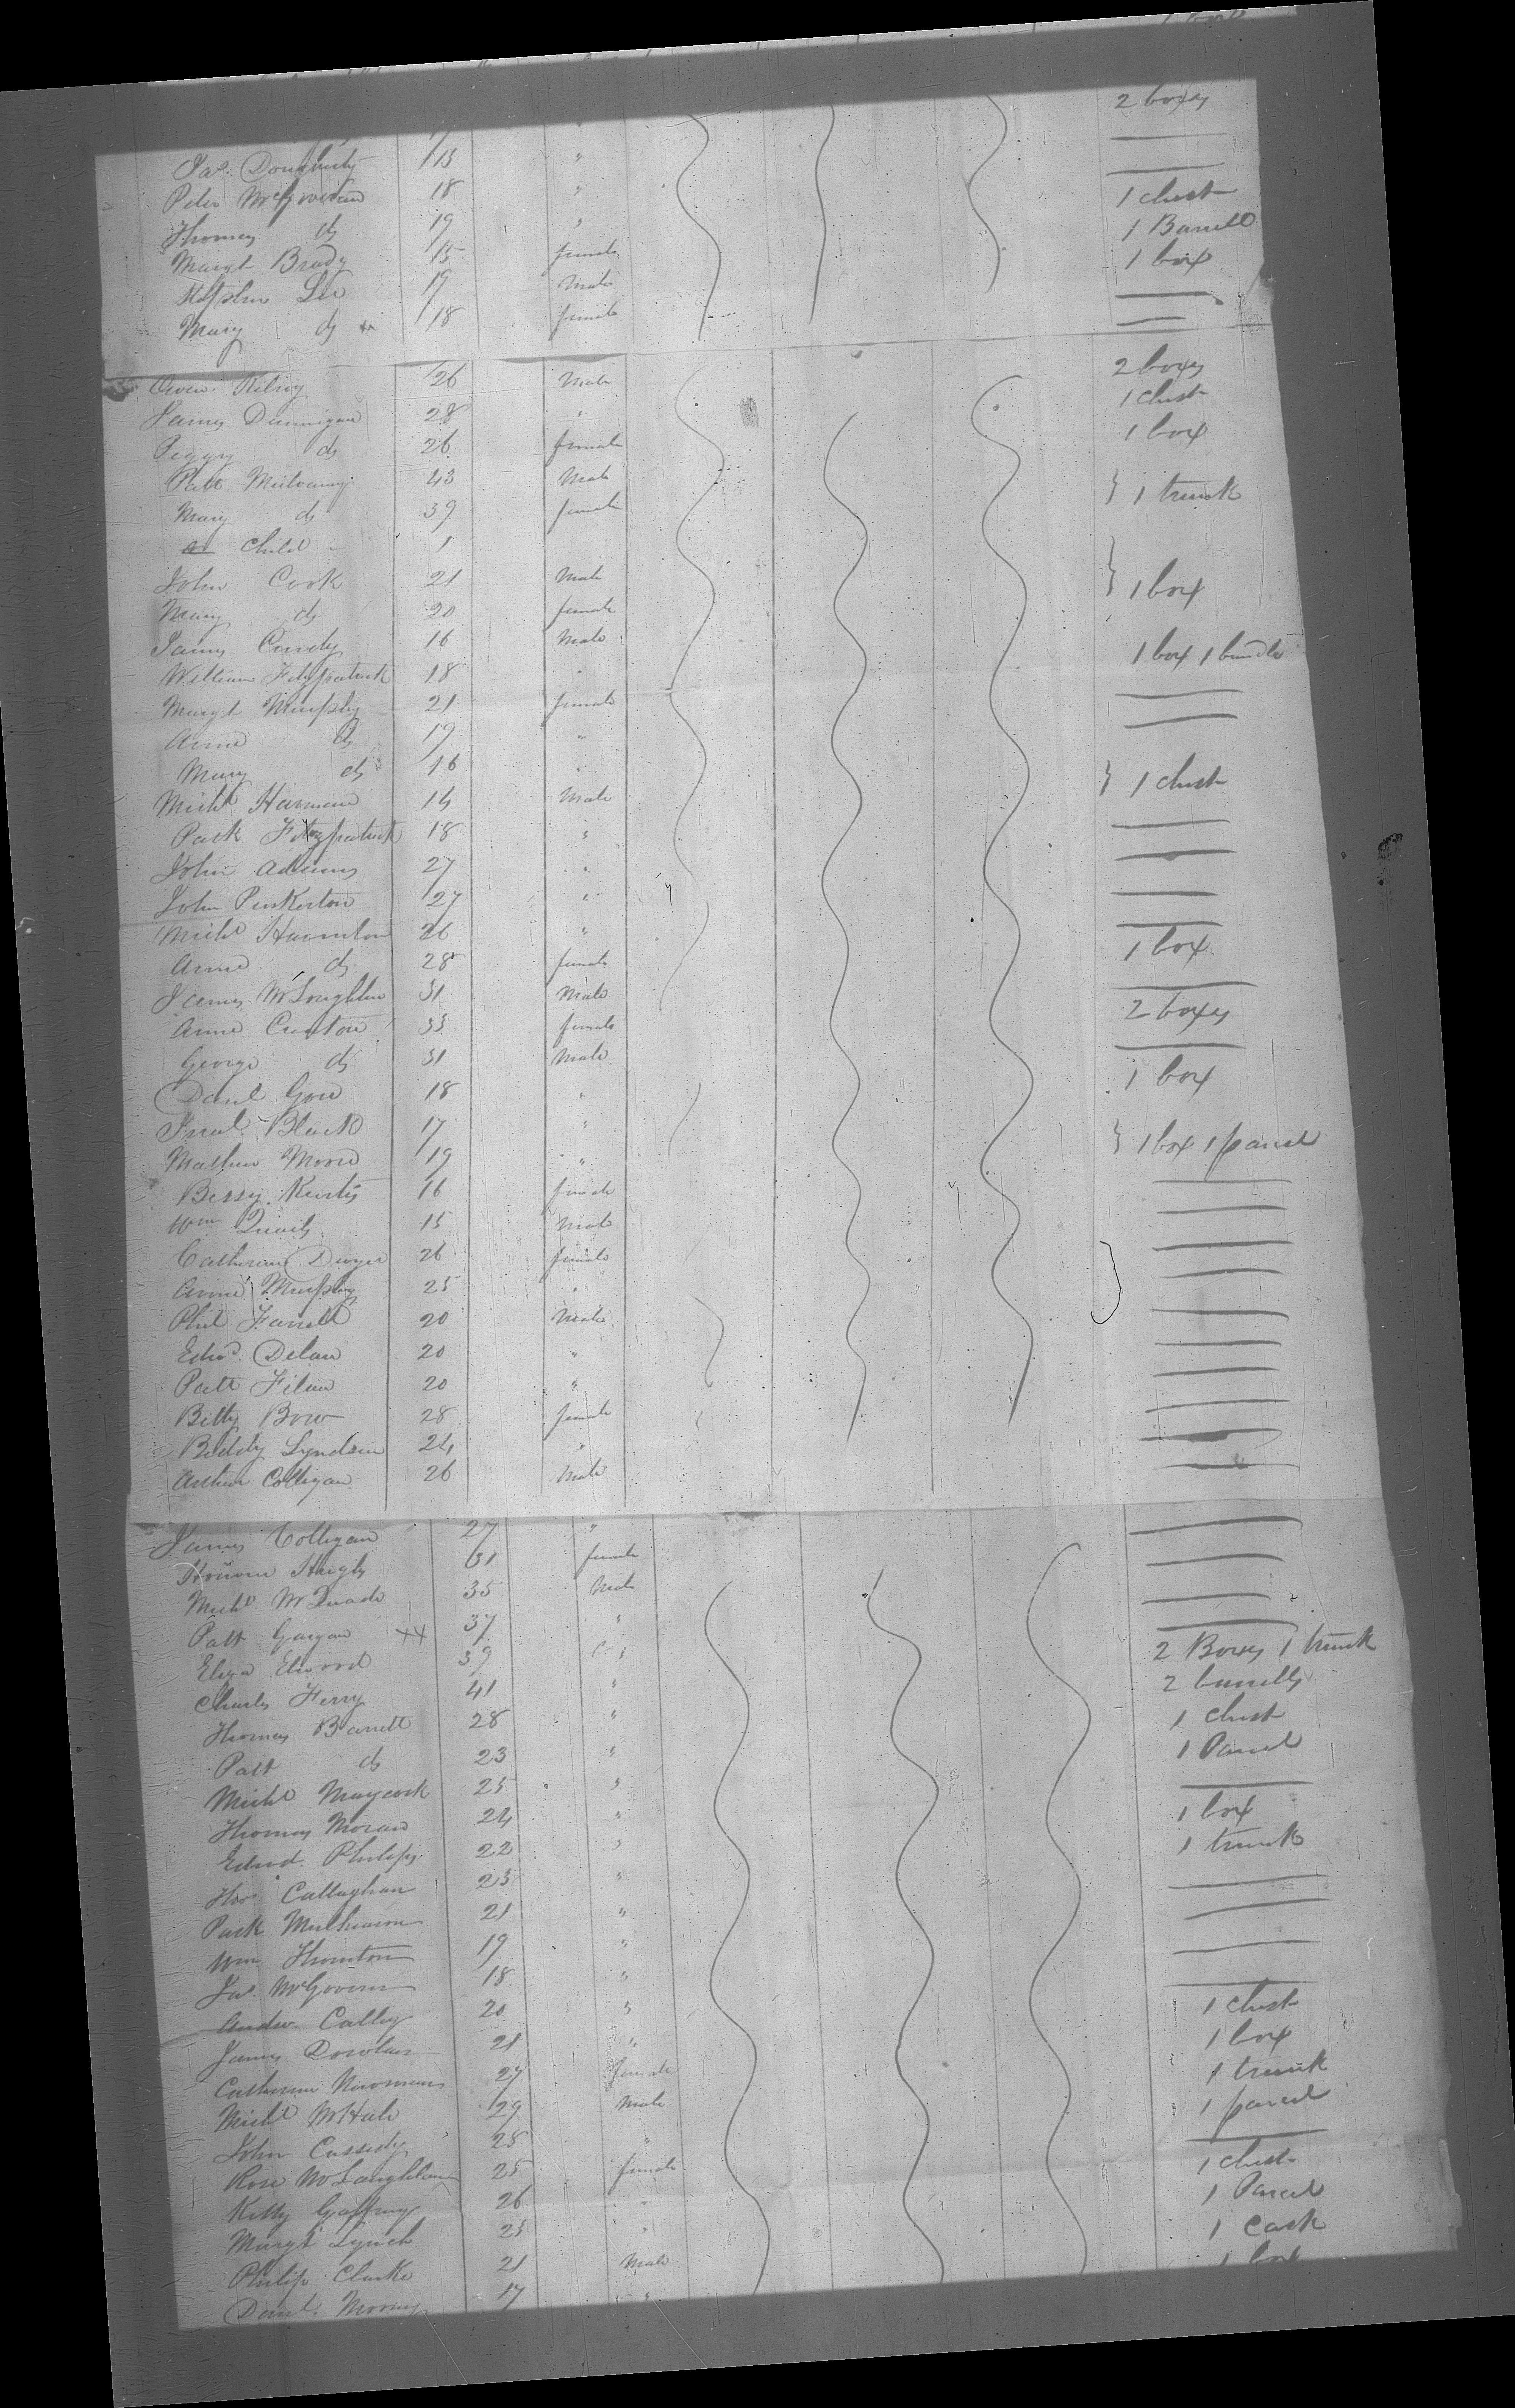 2 boxes
17 "
Jas. Dougherty 15 "
Peter McGovern 18 " 1 chest
Thomas do 19 " 1 Barrell
Margt Brady 15 female 1 box
Stephen Lee 19 Male
Mary do 18 female
Owen Kilroy 26 Male 2 boxes
James Dunnigan 28 " 1 chest
Peggy do 26 female 1 box
Patt Mulvaney 43 Male } 1 trunk
Mary do 39 female
Child 1
John Cook 21 Male } 1 box
Mary do 20 female
James Cundy 16 Male 1 box 1 bundle
William Fitzpatrick 18 "
Margt Murphy 21 female
Anne do 19 "
Mary do 16 " } 1 chest
Michl Harman 14 Male
Patk Fitzpatrick 18 "
John Adams 27 "
John Penkerton 27 "
Michl Harmton 26 " 1 box
Anne do 28 female
James McLoughlin 31 Male 2 boxes
Anne Cruxton 33 female
George do 31 Male 1 box
Danl Gow 18 "
Isral. Black 17 " } 1 box 1 parcel
Mathew Moore 19 "
Bessy 16 female
Wm Quail 15 Male
Catherine Dwyer 26 female
Anne Murphy 25 "
Phil Farrell 20 Male
Edwd. Delan 20 "
Patt Filan 20 "
Bitty Bow 28 female
Biddy 24 "
Arthur Colligan 26 Male
James Colligan 27 "
31 female
Michl McQuade 35 Male
Patt Gargan ++ 37 "
Eliza Elwood 39 2 Boxes 1 trunk
Charles Ferry 41 " 2 barrells
Thomas Barrett 28 " 1 chest
Patt do 23 " 1 Parcel
Michl Maycock 25 "
Thomas Moran 24 " 1 box
Edwd. Philips 22 " 1 trunk
Thos Callaghan 23 "
Patk 21 "
Wm Thornton 19 "
Jas. McGovern 18 "
Andw. Calley 20 " 1 chest
James Dowlan 21 " 1 box
Catherine 27 female 1 trunk
Michl McHale 29 Male 1 parcel
John Cassidy 25 "
Rose McLaughlan 25 female 1 chest
Kitty Gaffney 26 " 1 Parcel
Margt Lynch 23 " 1 Cask
Philip Clarke 21 Male 1 box
Danl. 17 "